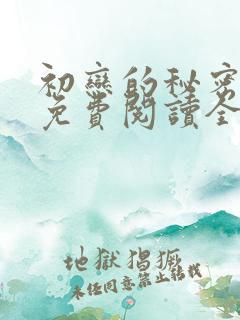 初戀的秘密
免費閱讀全
地獄猖獗
未经同意禁止转载